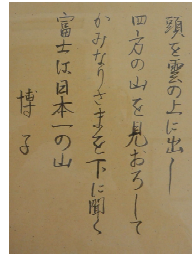 頭を雲の上に出し
四方の山を見おろして
かみなりさまを下に聞く
富士は日本一の山
博子